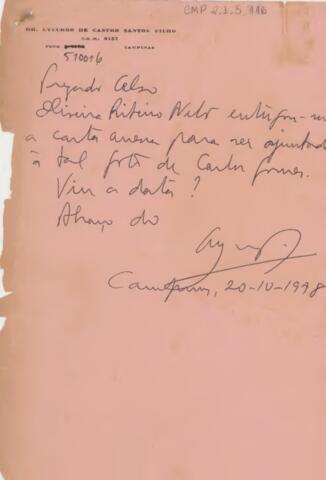 CMP 2.1.5.116
DR. LYCURGO DE CASTRO SANTOS FILHO
C.R.M. 4157
FONE CAMPINAS
510016
Prezado Celso
Oliveira Ribeiro Neto entregou-me
a carta anexa para ser ajuntada
à tal foto de Carlos Gomes.
Viu a data?
Abraço do
Campinas, 20-IV-1978